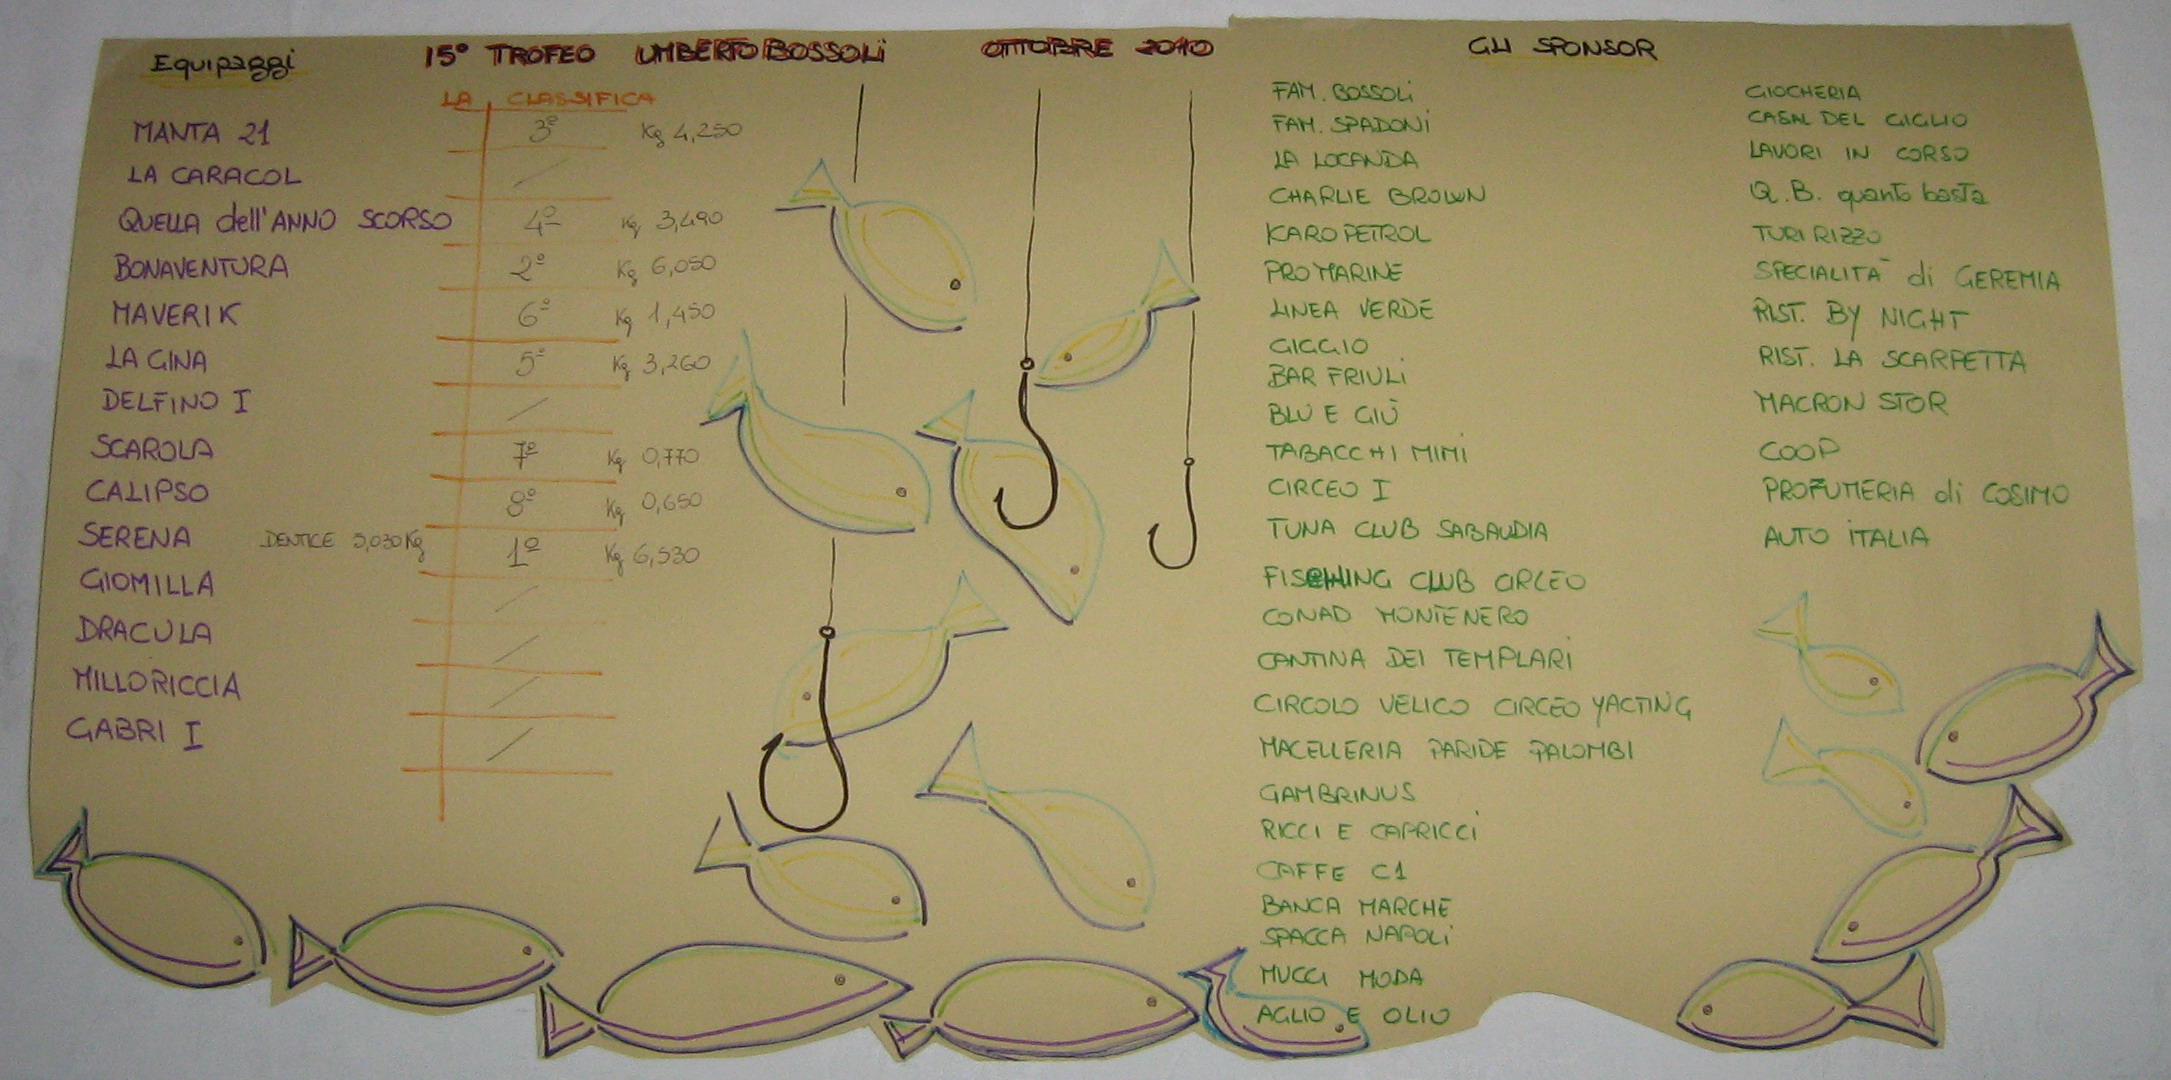 Equipaggi 15° TROFEO UMBERTO BOSSOLi OTTOBRE 2010 GLI SPONSOR
LA CLASSIFICA
MANTA 21 3° Kg 4,250
LA CARACOL /
QUELLA dell'ANNO SCORSO 4° Kg 3,490
BONAVENTURA 2° Kg 6,050
MAVERIK 6° Kg 1,450
LA GINA 5° Kg 3,260
DELFINO I /
SCAROLA 7° Kg 0,770
CALIPSO 8° Kg 0,650
SERENA DENTICE 5,030 Kg 1° Kg 6,530
GIOMILLA /
DRACULA /
MILLORICCIA /
GABRI I /
FAM. BOSSOLi
FAM. SPADONi
LA LOCANDA
CHARLIE BROWN
KARO PETROL
PROMARINE
LINEA VERDE
GIGGIO
BAR FRIULi
BLU E GIÙ
TABACCHI MIMI
CIRCEO I
TUNA CLUB SABAUDIA
FISCHING CLUB CIRCEO
CONAD MONTENERO
CANTINA DEI TEMPLARI
CIRCOLO VELICO CIRCEO YACTING
MACELLERIA PARIDE PALOMBI
GAMBRINUS
RICCI E CAPRICCi
CAFFE C1
BANCA MARCHE
SPACCA NAPOLi
MUCCI MODA
AGLIO E OLIO
GIOCHERIA
CASAL DEL GIGLIO
LAVORI IN CORSO
Q.B. quanto basta
TURI RIZZO
SPECIALITÀ di GEREMIA
RIST. BY NIGHT
RIST. LA SCARPETTA
MACRON STOR
COOP
PROFUMERIA di COSIMO
AUTO iTALIA